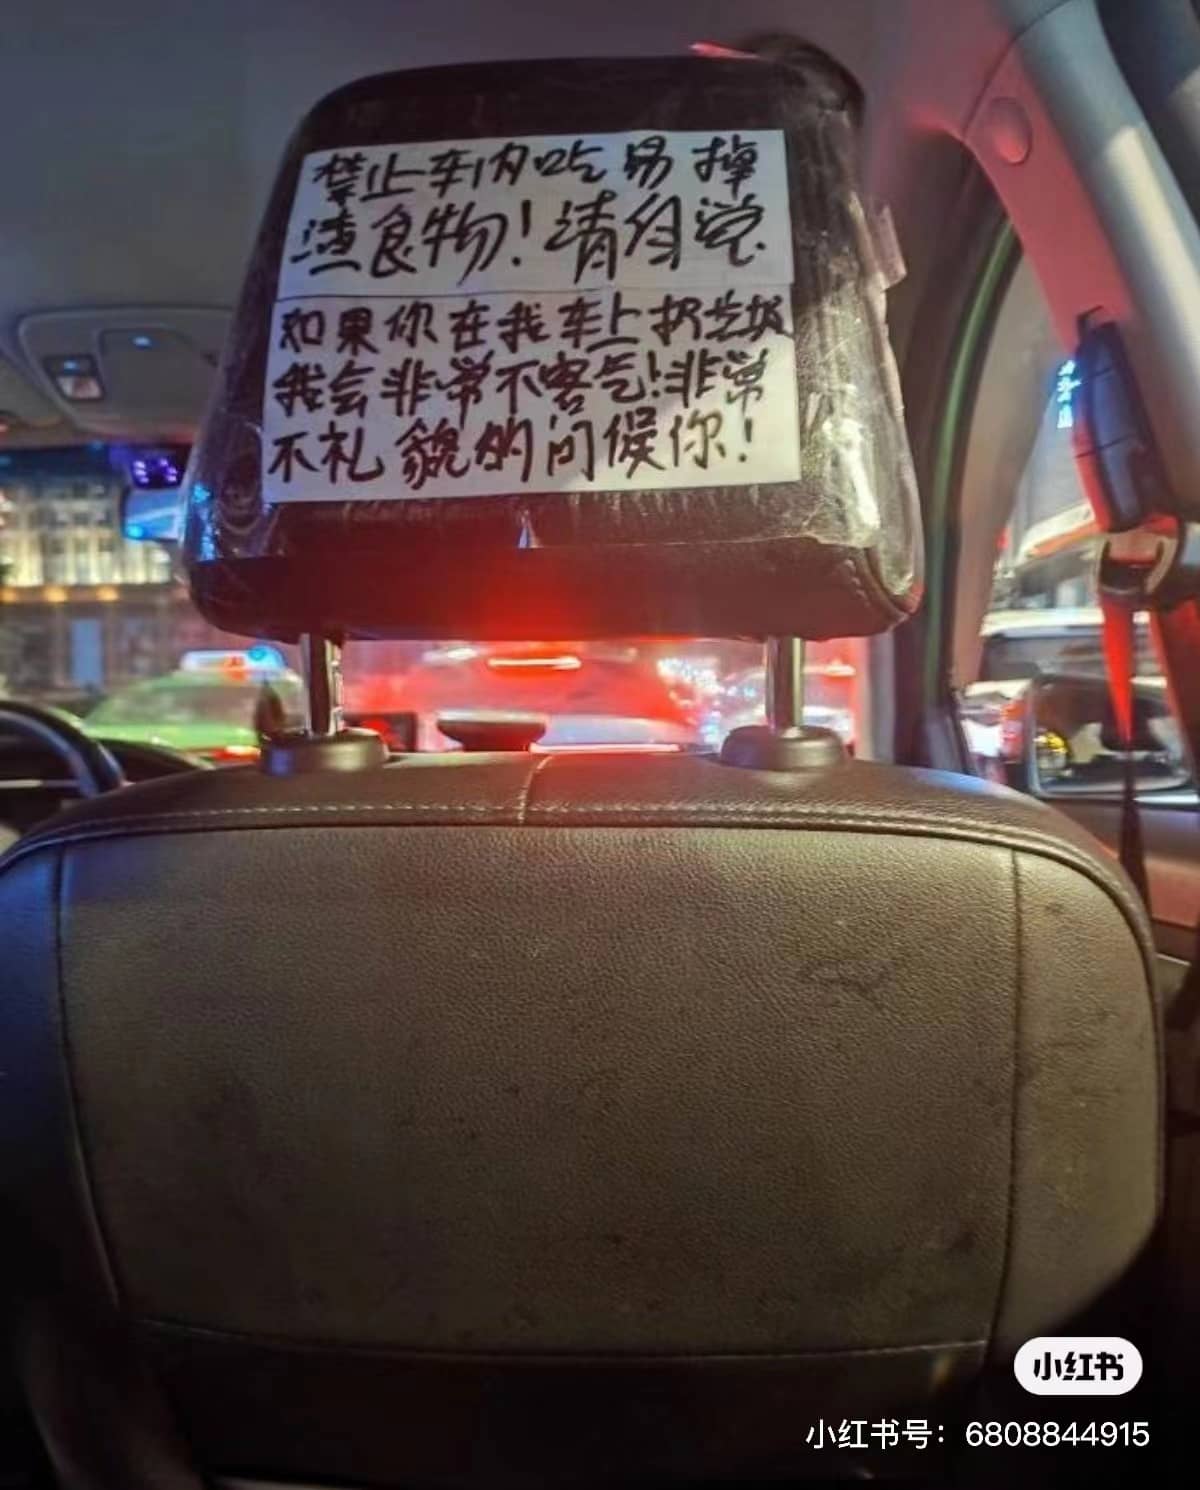 禁止车内吃易掉
渣食物！请自觉
如果你在我车上扔垃圾
我会非常不客气！非常
不礼貌的问候你！
小红书
小红书号：6808844915